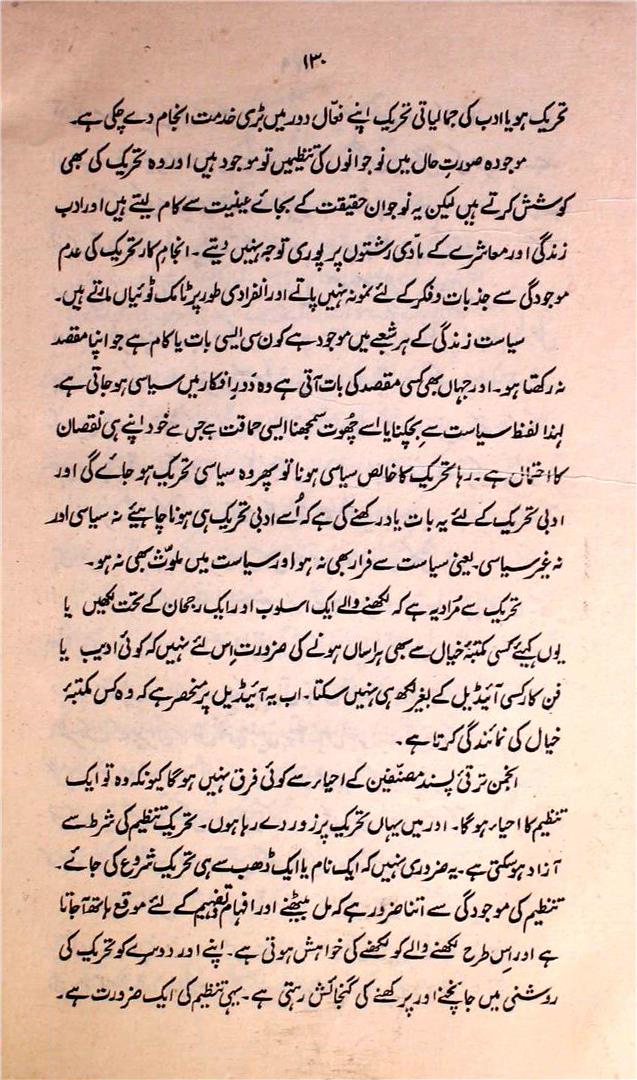 ۱۳۰
تحریک ہو یا ادب کی جمالیاتی تحریک اپنے فعّال دور میں بڑی خدمت انجام دے چکی ہے۔
موجودہ صورتِ حال میں نوجوانوں کی تنظیمیں تو موجود ہیں اور وہ تحریک کی بھی
کوشش کرتے ہیں لیکن یہ نوجوان حقیقت کے بجائے عینیت سے کام لیتے ہیں اور ادب
زندگی اور معاشرے کے مادّی رشتوں پر پوری توجہ نہیں دیتے۔ انجام کار تحریک کی عدم
موجودگی سے جذبات و فکر کے لئے نمونہ نہیں پاتے اور انفرادی طور پر ٹامک ٹوئیاں مارتے ہیں۔
سیاست زندگی کے ہر شعبے میں موجود ہے کون سی ایسی بات یا کام ہے جو اپنا مقصد
نہ رکھتا ہو۔ اور جہاں بھی کسی مقصد کی بات آتی ہے وہ دَورِ افکار میں سیاسی ہو جاتی ہے۔
لہذا لفظ سیاست سے بچکنا یا اسے چھُوت سمجھنا ایسی حماقت ہے جس سے خود اپنے ہی نقصان
کا احتمال ہے۔ رہا تحریک کا خالص سیاسی ہونا تو پھر وہ سیاسی تحریک ہو جائے گی اور
ادبی تحریک کے لئے یہ بات یاد رکھنے کی ہے کہ اُسے ادبی تحریک ہی ہونا چاہیئے نہ سیاسی اور
نہ غیر سیاسی۔ یعنی سیاست سے فرار بھی نہ ہو اور سیاست میں ملوّث بھی نہ ہو۔
تحریک سے مُراد یہ ہے کہ لکھنے والے ایک اسلوب اور ایک رجحان کے تحت لکھیں یا
یوں کہیئے کسی مکتبۂ خیال سے بھی ہراساں ہونے کی ضرورت اِس لئے نہیں کہ کوئی ادیب یا
فن کار کسی آئیڈیل کے بغیر لکھ ہی نہیں سکتا۔ اب یہ آئیڈیل پر منحصر ہے کہ وہ کس مکتبۂ
خیال کی نمائندگی کرتا ہے۔
انجمن ترقی پسند مصنّفین کے احیار سے کوئی فرق نہیں ہوگا کیونکہ وہ تو ایک
تنظیم کا احیار ہوگا۔ اور میں یہاں تحریک پر زور دے رہا ہوں۔ تحریک تنظیم کی شرط سے
آزاد ہو سکتی ہے۔ یہ ضروری نہیں کہ ایک نام یا ایک ڈھب سے ہی تحریک شروع کی جائے۔
تنظیم کی موجودگی سے اتنا ضرور ہے کہ مل بیٹھنے اور افہام و تفہیم کے لئے موقع ہاتھ آ جاتا
ہے اور اِس طرح لکھنے والے کو لکھنے کی خواہش ہوتی ہے۔ اپنے اور دوسرے کو تحریک کی
روشنی میں جانچنے اور پرکھنے کی گنجائش رہتی ہے۔ یہی تنظیم کی ایک ضرورت ہے۔